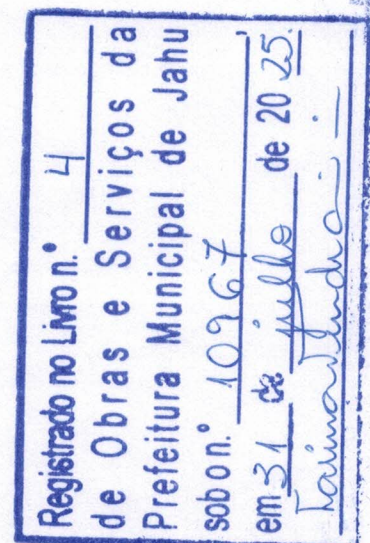 Registrado no Livro n.º 4
de Obras e Serviços da
Prefeitura Municipal de Jahu
sob o n.º 10967
em 31 de julho de 2025.